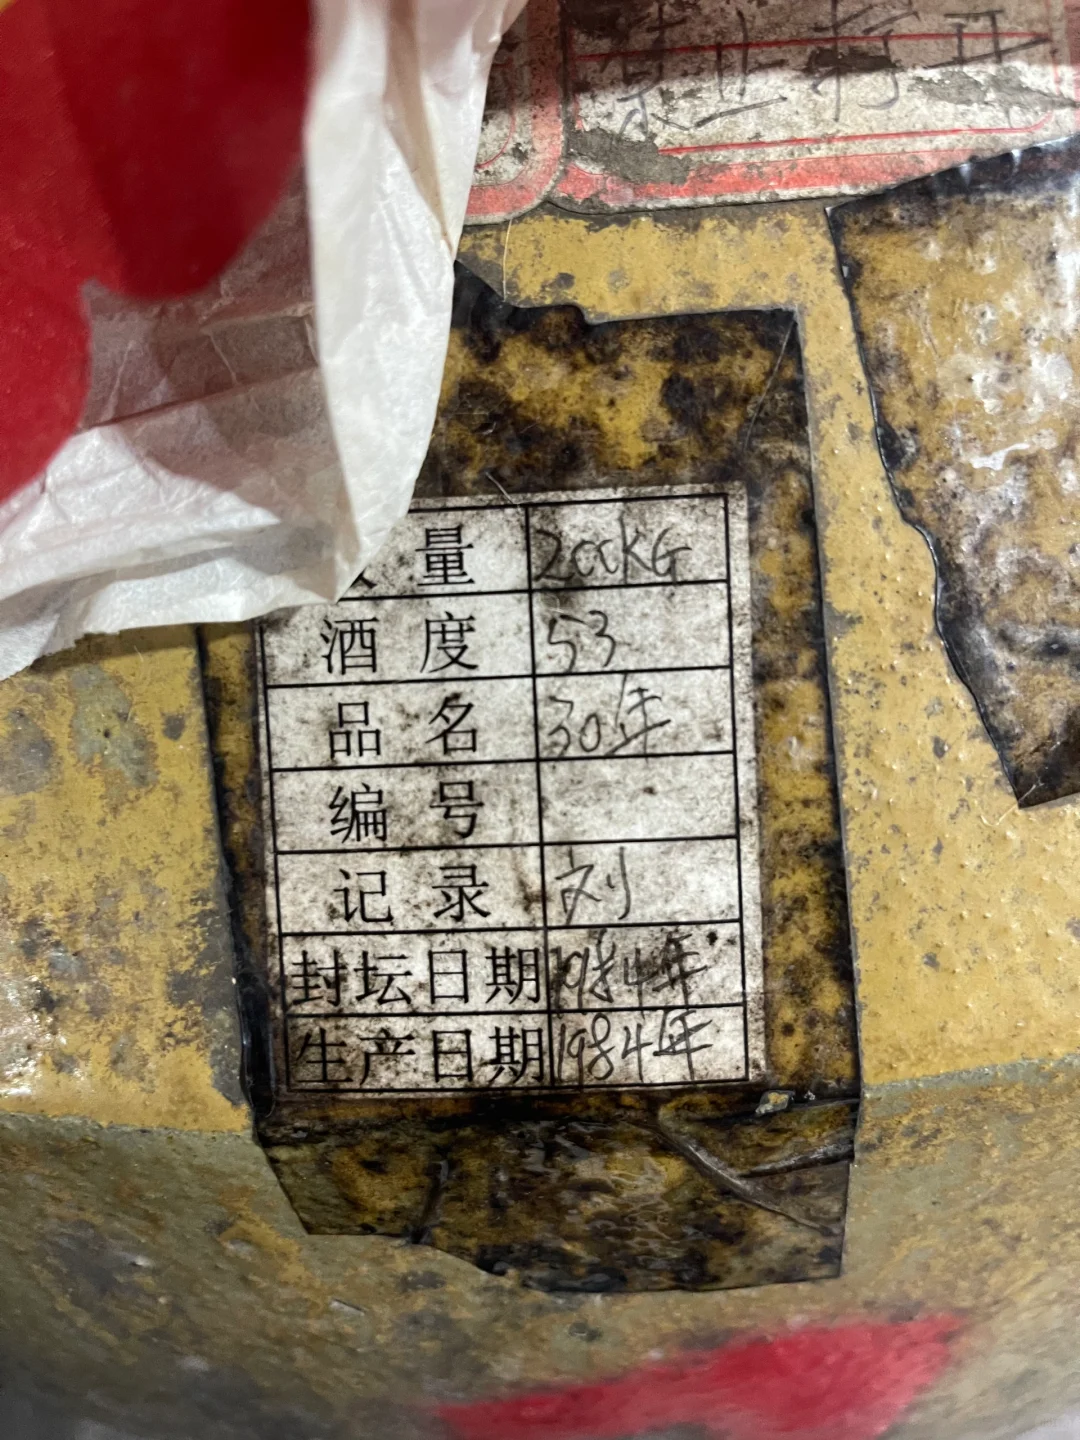 禁止打开
量 200KG
酒度 53
品名 30年
编号
记录 刘
封坛日期 1984年
生产日期 1984年